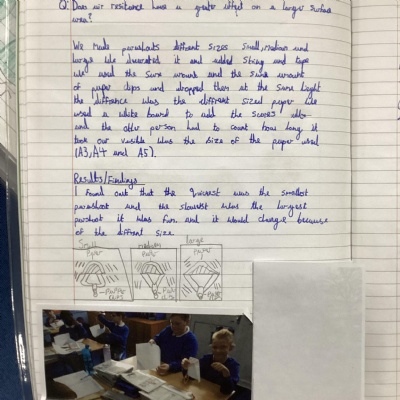 Q: Does air resistance have a greater effect on a larger surface
area?
We made parashouts diffrent sizes Small, Medium and
large We decorated it and added String and tape
We used the same amount and the same amount
of paper clips and dropped them at the same hight
the diffrence was the diffrent sized paper We
used a white board to add the scores
and the other person had to count how long it
took our vasible was the size of the paper used
(A3, A4 and A5).
Results/Findings
I found out that the quickest was the smallest
parashoot and the slowest was the largest
parshoot it was fun. and it would change because
of the diffrent size.
Small Paper
medium Paper
large Paper